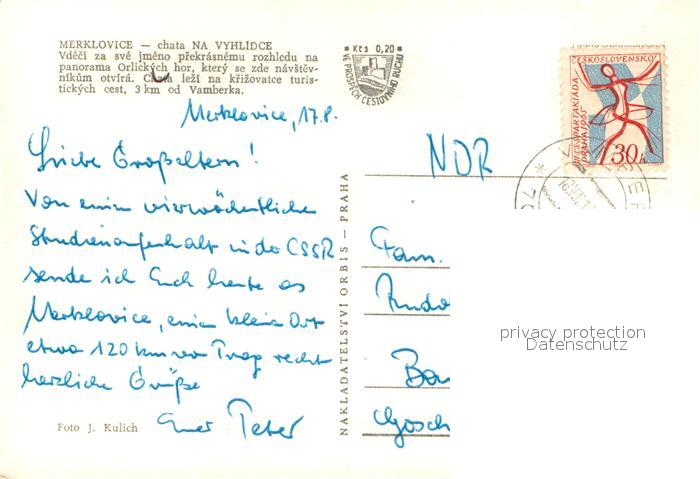 MERKLOVICE — chata NA VYHLÍDCE
Vděčí za své jméno překrásnému rozhledu na
panorama Orlických hor, který se zde návštěv-
níkům otvírá. Chata leží na křižovatce turis-
tických cest, 3 km od Vamberka.
Kčs 0,20
VE PROSPĚCH CESTOVNÍHO RUCHU
ČESKOSLOVENSKO
III. CS. SPARTAKIÁDA
PRAHA 1965
30h
Merklovice, 17.8.
Liebe Großeltern!
Von einem vierwöchentlichen
Studienaufenhalt in der CSSR
sende ich Euch heute aus
Merklovice, einem kleinen Ort
etwa 120 km von Prag recht
herzliche Grüße
Euer Peter
Foto J. Kulich
NAKLADATELSTVÍ ORBIS — PRAHA
NDR
Fam.
Rudo
Bau
Gosch
privacy protection
Datenschutz